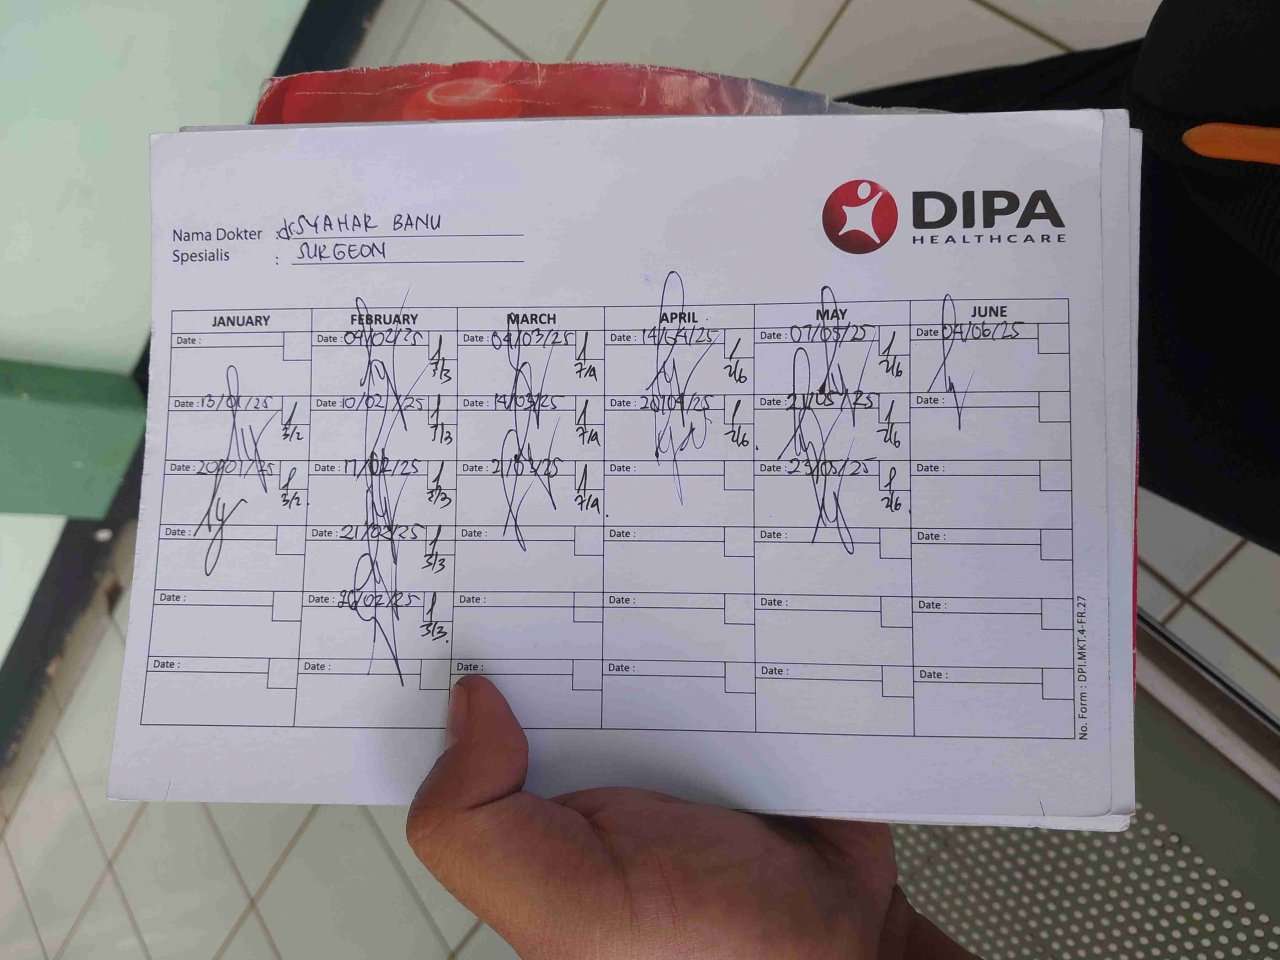 DIPA
HEALTHCARE
Nama Dokter : dr SYAHAR BANU
Spesialis : SURGEON
JANUARY FEBRUARY MARCH APRIL MAY JUNE
Date : Date : 04/02/25 Date : 04/03/25 Date : 14/04/25 Date : 07/05/25 Date : 04/06/25
7/3 7/4 2/6 2/6
Date : 13/01/25 Date : 10/02/25 Date : 14/03/25 Date : 20/04/25 Date : 21/05/25 Date :
3/2 7/3 7/4 2/6 2/6
Date : 20/01/25 Date : 17/02/25 Date : 21/03/25 Date : Date : 23/05/25 Date :
3/2 3/3 7/4 2/6
Date : Date : 21/02/25 Date : Date : Date : Date :
3/3
Date : Date : /02/25 Date : Date : Date : Date :
3/3
Date : Date : Date : Date : Date : Date :
No. Form : DPI.MKT.4-FR.27